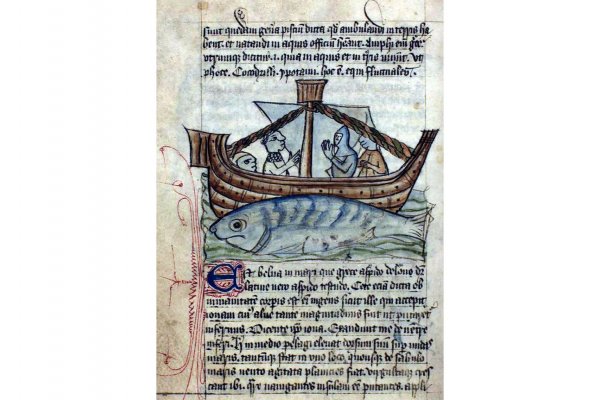 sunt quedam gen̄a pisciū dicta qd̄ ambulandi in terris ha
bent. et natandi in aquis officiū hēant. Amphi em̄
utrumque dicitur .i. quia in aquis et in tr̄is vivūt. Vt
phoce. Cocodrilli. ypotami. hoc ē. equi fluctuales.
Est belua in mari que grece aspido delone dr̄
latine vero aspido testudo. Cete etiā dicta ob
immanitatem corp̄is est em̄ ingens sicut ille qui accepit
ionam cuiꝰ alvꝰ tante magnitudinis fuit ut putaret
infernus. Dicente ip̄o iona. Exaudivit me de ventre
inferi. H̄ in medio pelagi elevat dorsum suū sup̄ undas
maris. tantūque stat in uno loco. quousque de sabulo
maris vento agitata planicies fiat. virgultaque cres
cant ibi. navigantes insulam eē putantes. appli